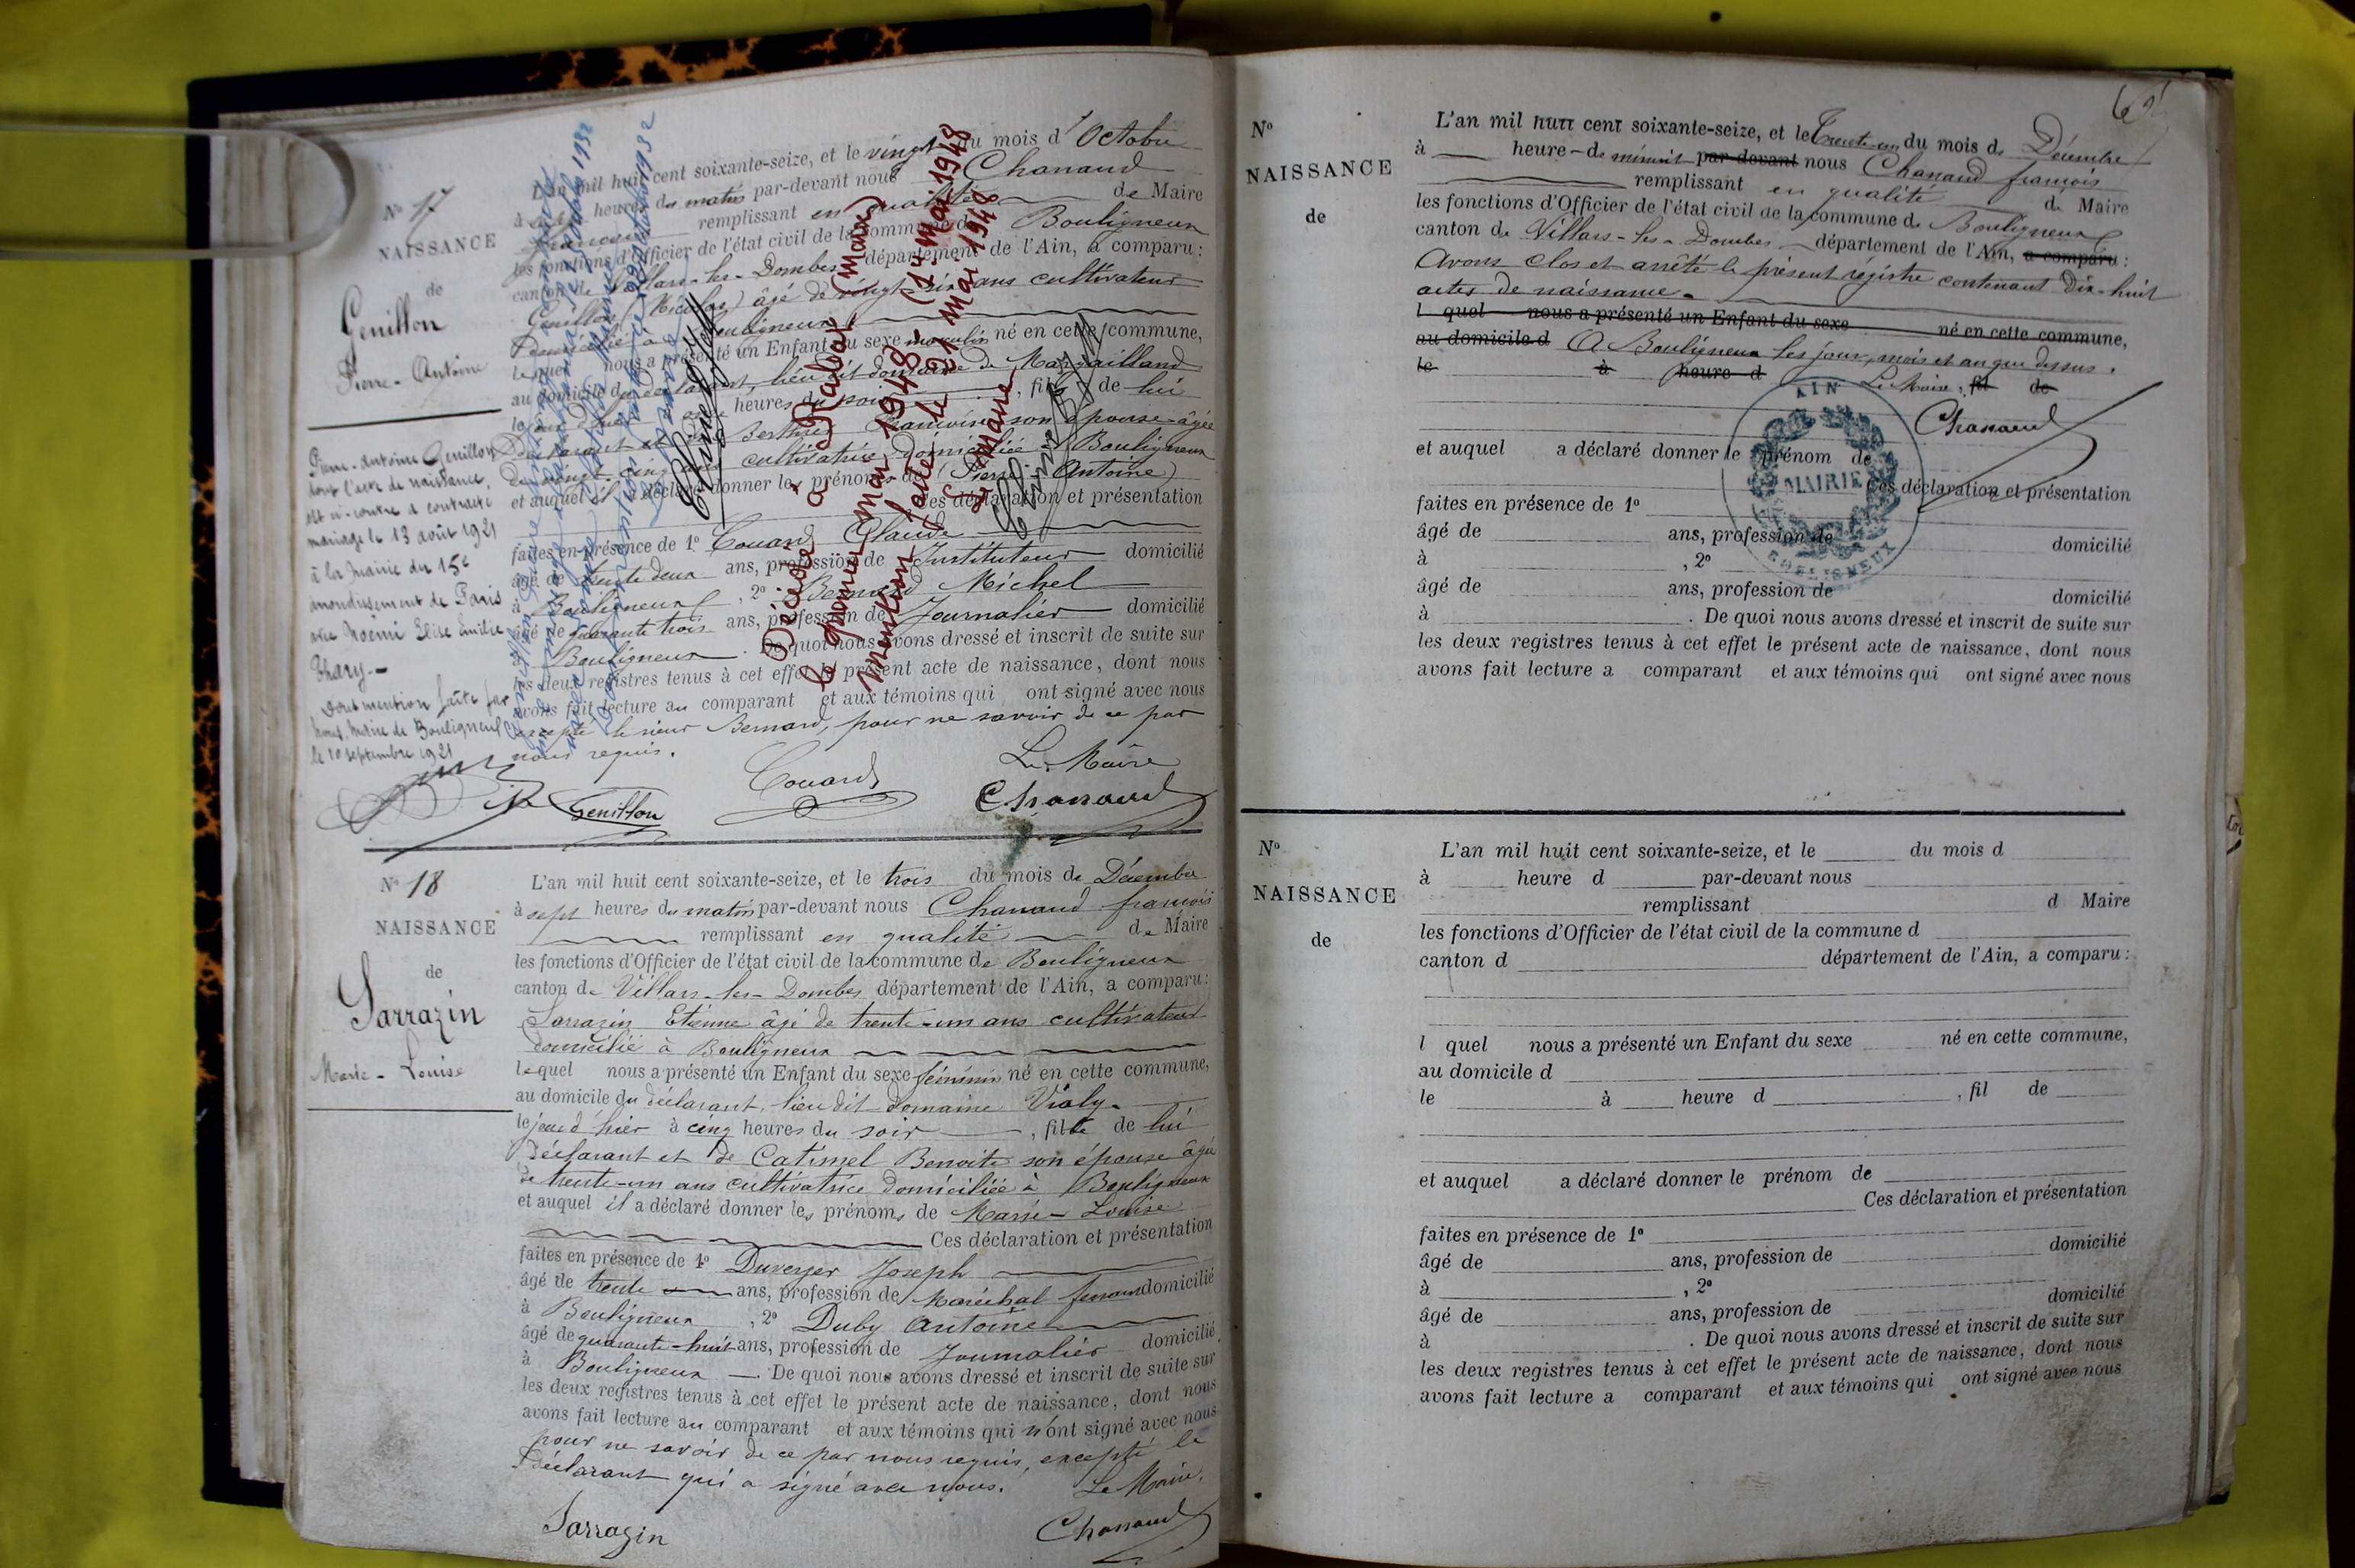 N° 17
NAISSANCE
de
Genillon
Pierre - Antoine
Pierre-Antoine Genillon
dont l'acte de naissance
est ci-contre a contracté
mariage le 13 août 1921
à la Mairie du 15e
arrondissement de Paris
avec Noémi Elise Emilie
Thary -
Dont mention faite par
nous, Maire de Bouligneux
le 10 septembre 1921
L'an mil huit cent soixante-seize, et le vingt du mois d'Octobre
à heures du matin par-devant nous Chanaud
François remplissant en qualité de Maire
les fonctions d'Officier de l'état civil de la commune de Bouligneux
canton de Villars-les-Dombes département de l'Ain, a comparu:
Genillon (Nicolas) âgé de vingt-six ans cultivateur
Domicilié à Bouligneux
lequel nous a présenté un Enfant du sexe masculin né en cette commune,
au domicile du déclarant, lieu dit domaine de
le jour d'hier heures du soir, fils de lui
Déclarant et de Berthier son épouse âgée
de vingt-cinq ans cultivatrice domiciliée à Bouligneux
et auquel il a déclaré donner les prénoms de (Pierre-Antoine)
Ces déclaration et présentation
faites en présence de 1° Couard Claude
âgé de trente deux ans, profession de Instituteur domicilié
à Bouligneux, 2° Bernard Michel
âgé de quarante trois ans, profession de Journalier domicilié
à Bouligneux. De quoi nous avons dressé et inscrit de suite sur
les deux registres tenus à cet effet le présent acte de naissance, dont nous
avons fait lecture au comparant et aux témoins qui ont signé avec nous
excepté le sieur Bernard, pour ne savoir de ce par
nous requis.
Le Maire
Genillon Couard Chanaud
Décédé à Rabat (Maroc)
le premier mai 1948. (1er Mai 1948)
Mention faite le 21 Mai 1948
Le Maire
N° 18
NAISSANCE
de
Sarrazin
Marie - Louise
L'an mil huit cent soixante-seize, et le trois du mois de Décembre
à sept heures du matin par-devant nous Chanaud françois
remplissant en qualité de Maire
les fonctions d'Officier de l'état civil de la commune de Bouligneux
canton de Villars-les-Dombes département de l'Ain, a comparu:
Sarrazin Etienne âgé de trente-un ans cultivateur
domicilié à Bouligneux
lequel nous a présenté un Enfant du sexe féminin né en cette commune,
au domicile du déclarant, lieu dit domaine Vialy.
le jour d'hier à cinq heures du soir, fille de lui
déclarant et de Catimel Benoite son épouse âgée
de trente-un ans cultivatrice domiciliée à Bouligneux
et auquel il a déclaré donner les prénoms de Marie-Louise
Ces déclaration et présentation
faites en présence de 1° Duverger Joseph
âgé de trente ans, profession de Maréchal ferrant domicilié
à Bouligneux, 2° Duby Antoine
âgé de quarante-huit ans, profession de Journalier domicilié
à Bouligneux. De quoi nous avons dressé et inscrit de suite sur
les deux registres tenus à cet effet le présent acte de naissance, dont nous
avons fait lecture au comparant et aux témoins qui n'ont signé avec nous
pour ne savoir de ce par nous requis, excepté le
déclarant qui a signé avec nous. Le Maire,
Sarrazin Chanaud
N°
NAISSANCE
de
L'an mil huit cent soixante-seize, et le Trente-un du mois de Décembre
à heure de minuit par-devant nous Chanaud françois
remplissant en qualité de Maire
les fonctions d'Officier de l'état civil de la commune de Bouligneux
canton de Villars-les-Dombes département de l'Ain, a comparu:
Avons clos et arrêté le présent registre contenant Dix-huit
actes de naissance.
l quel nous a présenté un Enfant du sexe né en cette commune,
au domicile d A Bouligneux les jour, mois et an que dessus.
le à heure d Le Maire, fil de
Chanaud
AIN
MAIRIE
BOULIGNEUX
et auquel a déclaré donner le prénom de
Ces déclaration et présentation
faites en présence de 1°
âgé de ans, profession de domicilié
à , 2°
âgé de ans, profession de domicilié
à . De quoi nous avons dressé et inscrit de suite sur
les deux registres tenus à cet effet le présent acte de naissance, dont nous
avons fait lecture a comparant et aux témoins qui ont signé avec nous
N°
NAISSANCE
de
L'an mil huit cent soixante-seize, et le du mois d
à heure d par-devant nous
remplissant d Maire
les fonctions d'Officier de l'état civil de la commune d
canton d département de l'Ain, a comparu:
l quel nous a présenté un Enfant du sexe né en cette commune,
au domicile d
le à heure d , fil de
et auquel a déclaré donner le prénom de
Ces déclaration et présentation
faites en présence de 1°
âgé de ans, profession de domicilié
à , 2°
âgé de ans, profession de domicilié
à . De quoi nous avons dressé et inscrit de suite sur
les deux registres tenus à cet effet le présent acte de naissance, dont nous
avons fait lecture a comparant et aux témoins qui ont signé avec nous